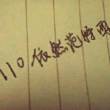 110 依然范特西